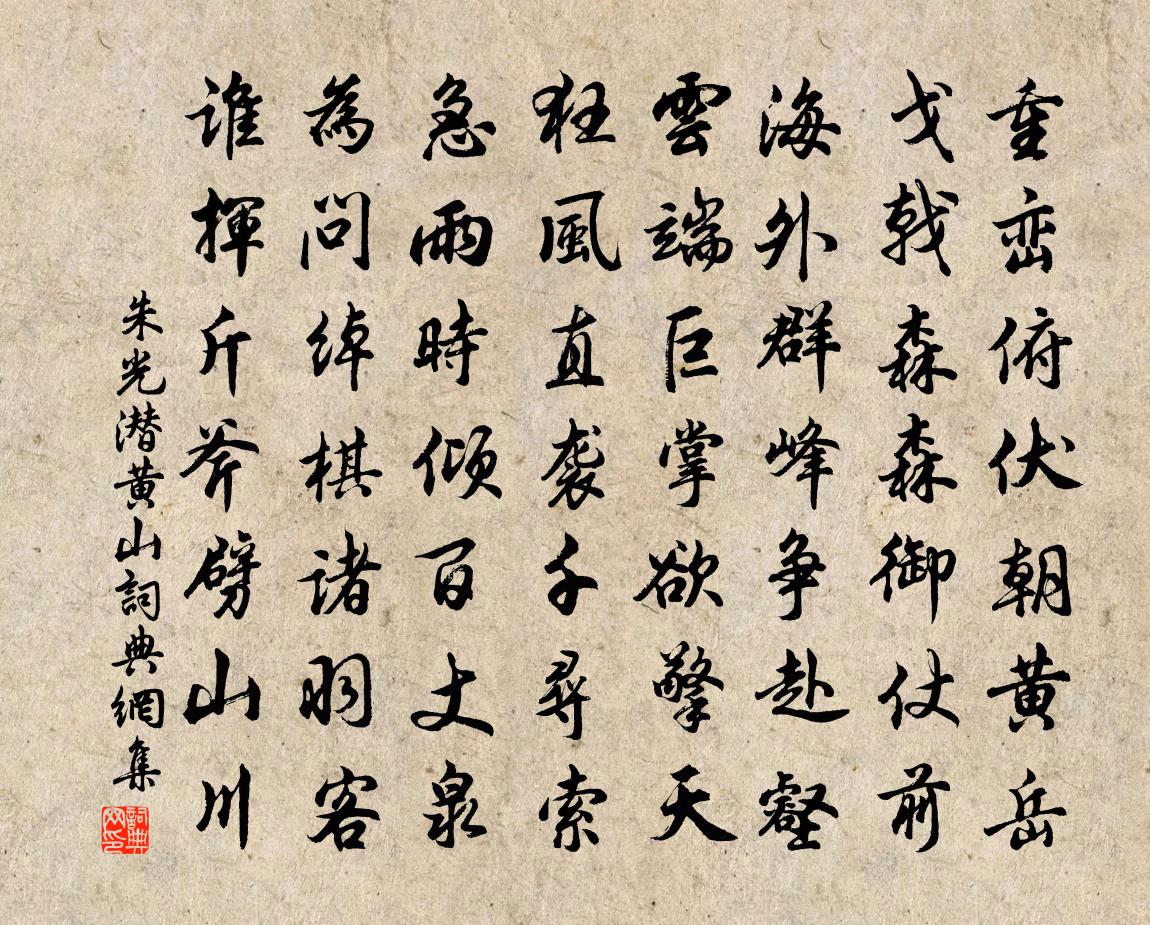 重峦俯伏朝黄岳
戈戟森森御仗前
海外群峰争赴壑
雲端巨掌欲擎天
狂風直袭千尋索
急雨時傾百丈泉
為問綽棋諸羽客
谁揮斤斧劈山川
朱光潜黄山詞典網集
詞典網印